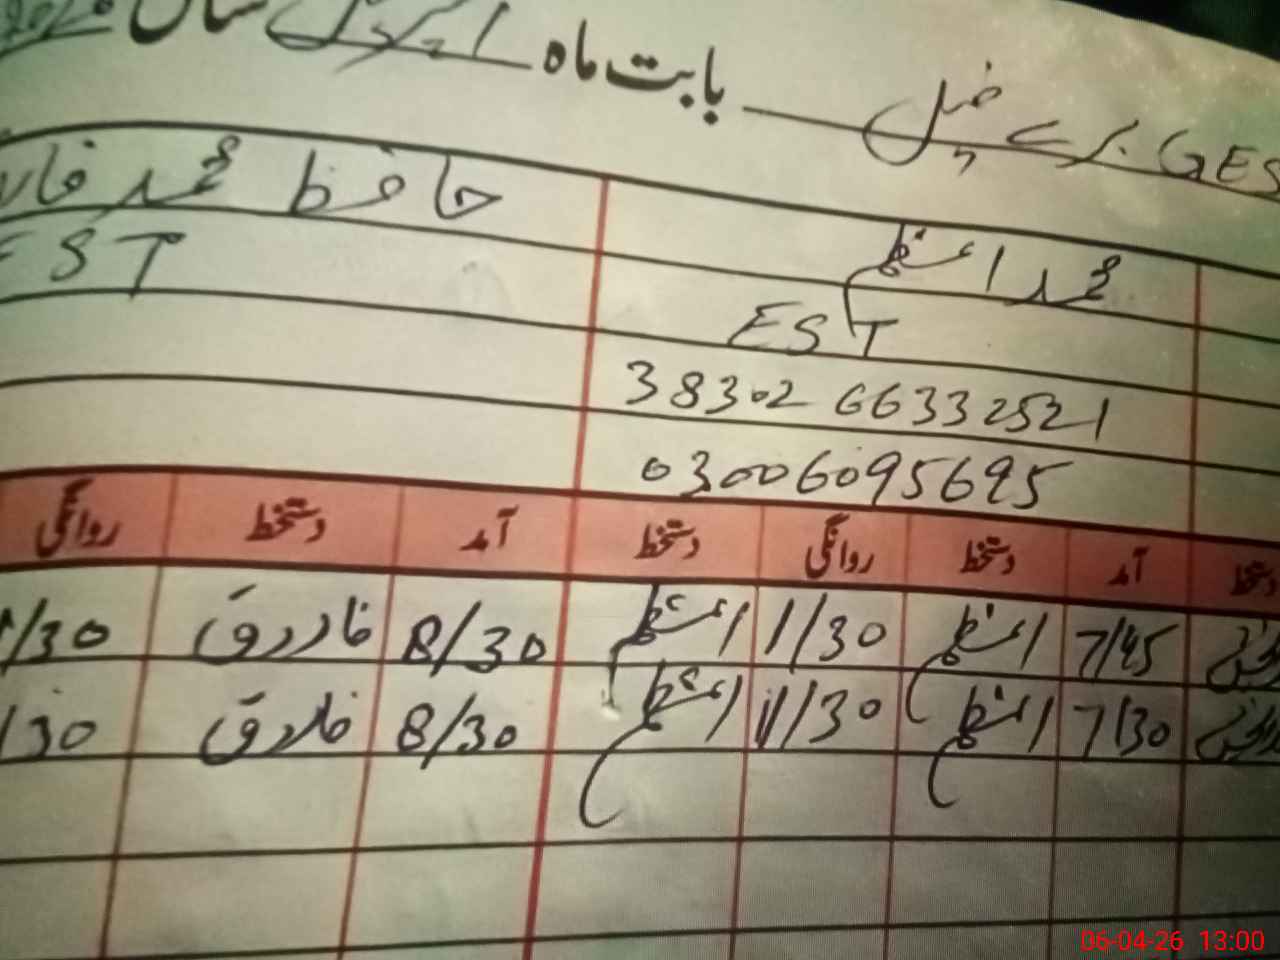 GES بابت ماہ اپریل سال
محمد اعظم حافظ محمد
EST EST
38302 66332521
03006095695
آمد دستخط روانگی دستخط آمد دستخط روانگی
7/45 اعظم 1/30 اعظم 8/30 فاروق /30
7/30 اعظم 1/30 اعظم 8/30 فاروق /30
06-04-26 13:00